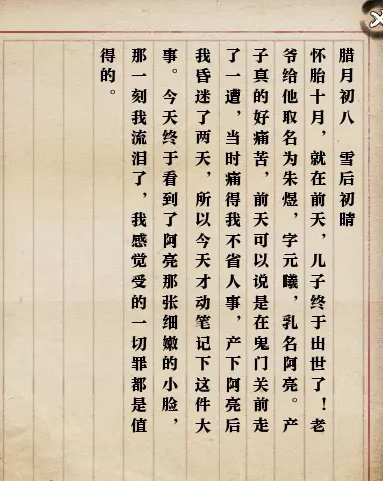 腊月初八　雪后初晴
怀胎十月，就在前天，儿子终于出世了！老
爷给他取名为朱煜，字元曦，乳名阿亮。产
子真的好痛苦，前天可以说是在鬼门关前走
了一遭，当时痛得我不省人事，产下阿亮后
我昏迷了两天，所以今天才动笔记下这件大
事。今天终于看到了阿亮那张细嫩的小脸，
那一刻我流泪了，我感觉受的一切罪都是值
得的。